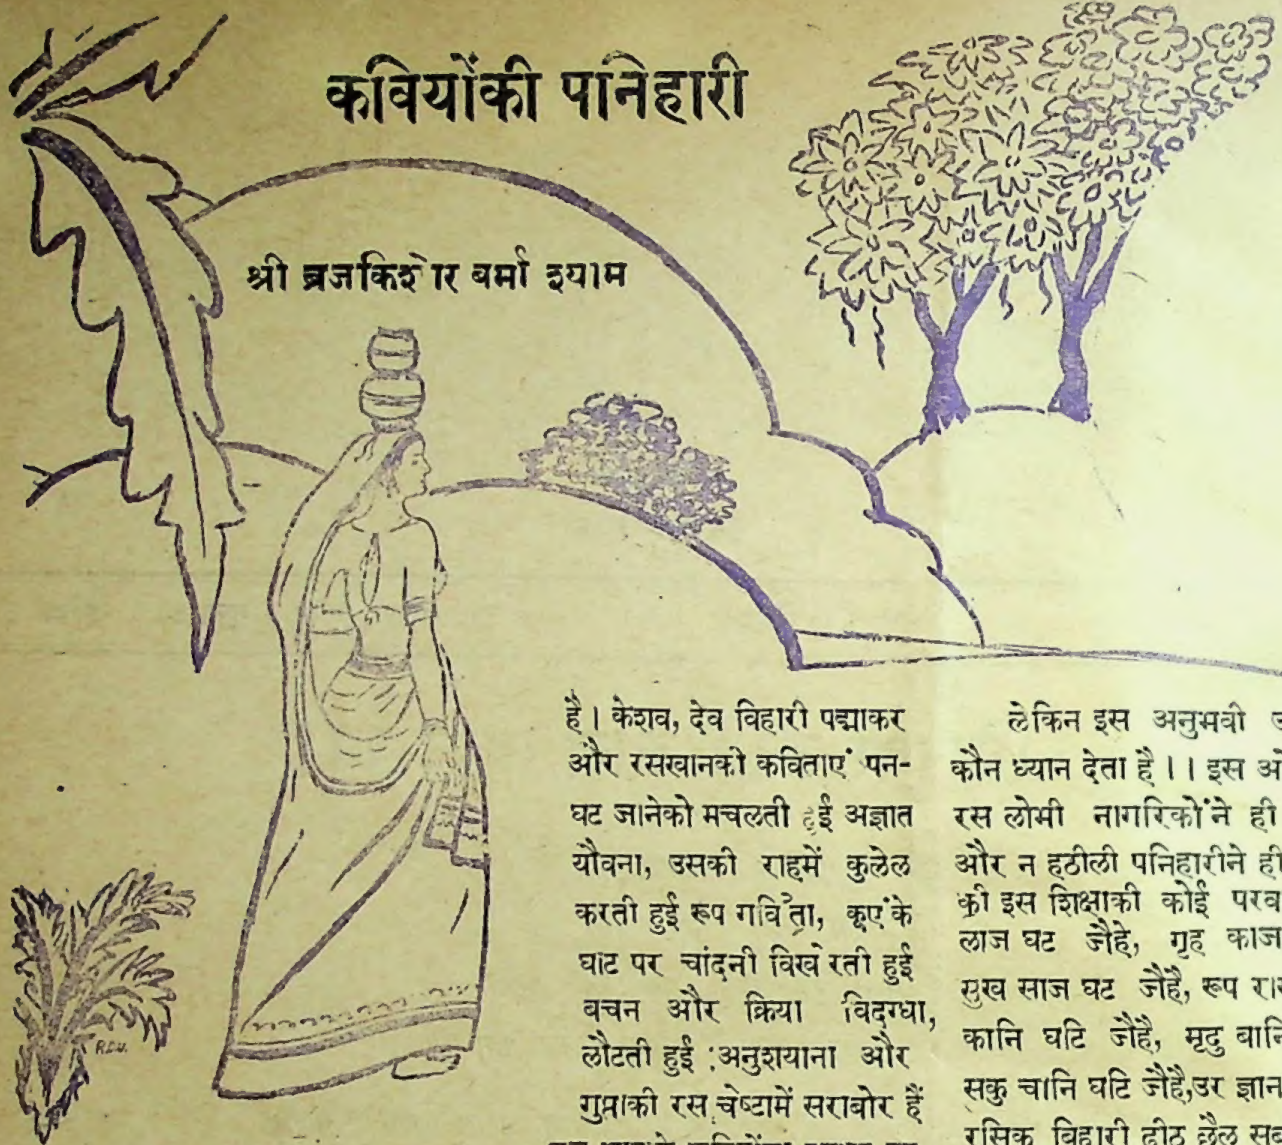 कवियोंकी पनिहारी
श्री ब्रजकिशोर बर्मा श्याम
है। केशव, देव विहारी पद्माकर
और रसखानकी कविताएं पन-
घट जानेको मचलती हुई अज्ञात
यौवना, उसकी राहमें कुलेल
करती हुई रूप गर्विता, कूएंके
घाट पर चांदनी विखेरती हुई
बचन और क्रिया विदग्धा,
लौटती हुई अनुशयाना और
गुप्ताकी रस चेष्टामें सराबोर हैं
लेकिन इस अनुभवी
कौन ध्यान देता है।। इस
रस लोभी नागरिकोंने ही
और न हठीली पनिहारीने ही
की इस शिक्षाकी कोई
लाज घट जैहे, गृह काज
सुख साज घट जैहै, रूप
कानि घटि जैहै, मृदु
सकु चानि घटि जैहै,उर ज्ञान
रसिक विहारी ढीट छैल
R.C.U.